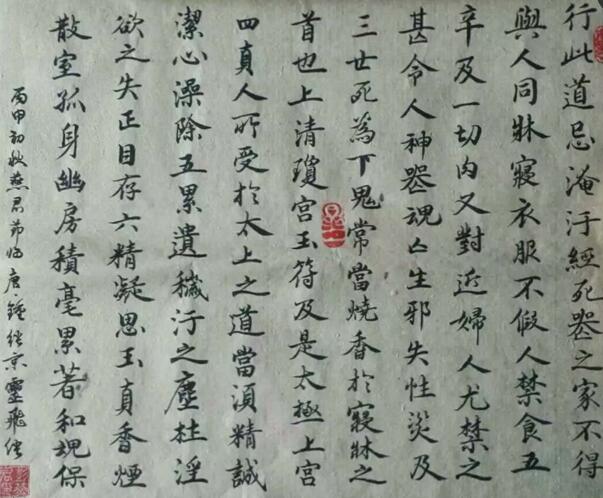 行此道忌淹汙經死喪之家不得
與人同牀寢衣服不假人禁食五
辛及一切肉又對近婦人尤禁之
甚令人神喪魂亡生邪失性災及
三世死為下鬼常當燒香於寢牀之
首也上清瓊宮玉符乃是太極上宮
四真人所受於太上之道當須精誠
潔心澡除五累遺穢汙之塵杜淫
欲之失正目存六精凝思玉真香煙
散室孤身幽房積毫累著和魂保
丙申初秋燕君節臨唐鍾紹京靈飛經